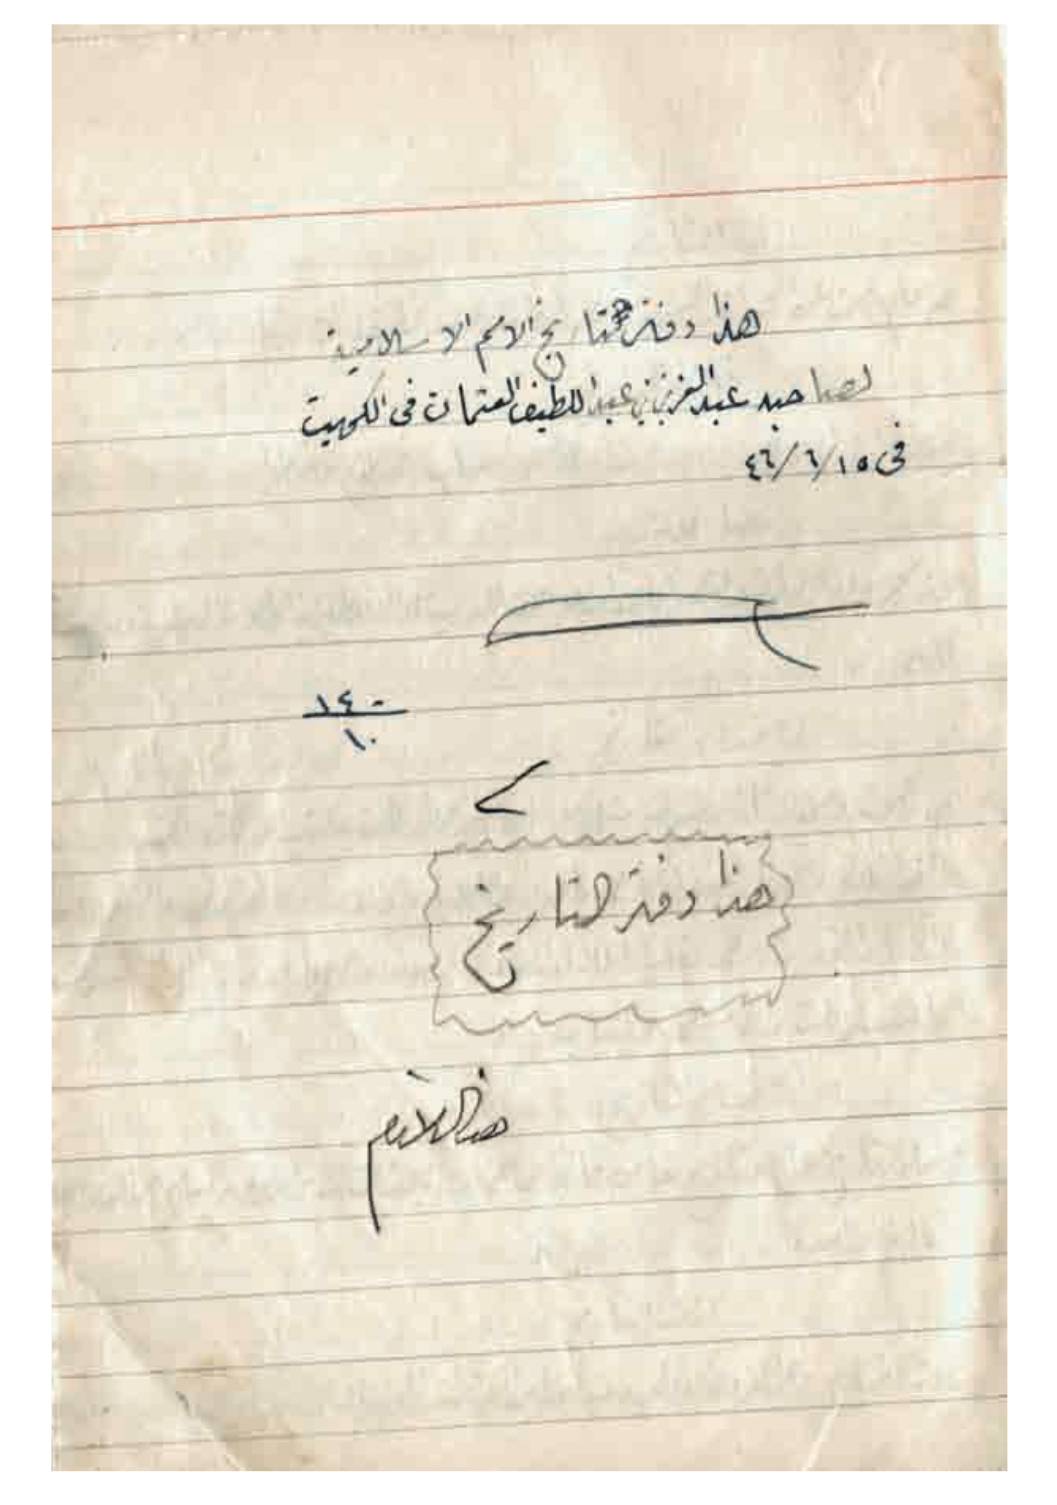 هذا دفتر تاريخ الامم الاسلامية
لصاحبه عبدالعزيز بن عبداللطيف العثمان في الكويت
في ١٥/٦/٤٦
١٤٠
١٠
هذا دفتر التاريخ